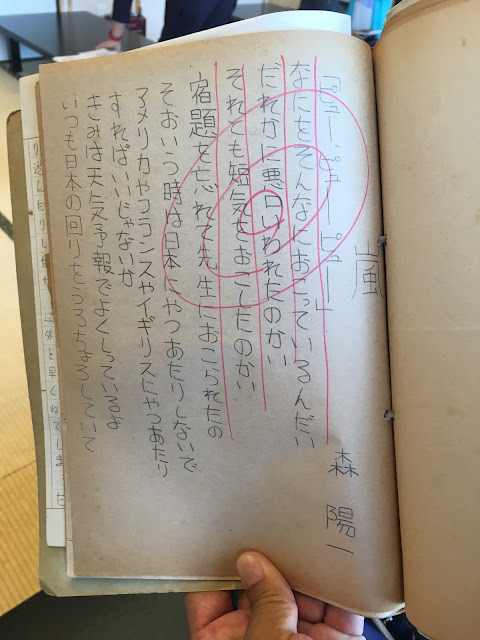 嵐
森 陽一
「ピュー、ピュー ピュー」
なにをそんなにおこっているんだい
だれかに悪口いわれたのかい
それとも短気をおこしたのかい
宿題を忘れて先生におこられたの
そおいう時は日本にやつあたりしないで
アメリカやフランスやイギリスにやつあたり
すればいいじゃないか
きみは天気予報でよくしっているよ
いつも日本の回りをうろちょろしていて